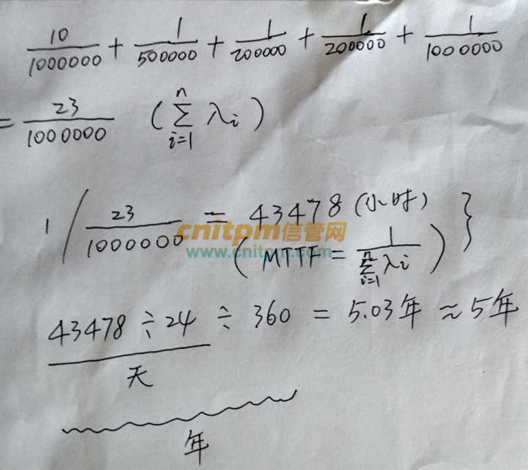 10/1000000 + 1/500000 + 1/200000 + 1/200000 + 1/1000000
= 23/1000000 (∑ⁿᵢ₌₁ λi)
1 / 23/1000000 = 43478 (小时) }
cnitpm信管网
www.cnitpm.com
(MTTF = 1/∑ⁿᵢ₌₁ λi)
43478 ÷ 24 ÷ 360 = 5.03年 ≈ 5年
天
年